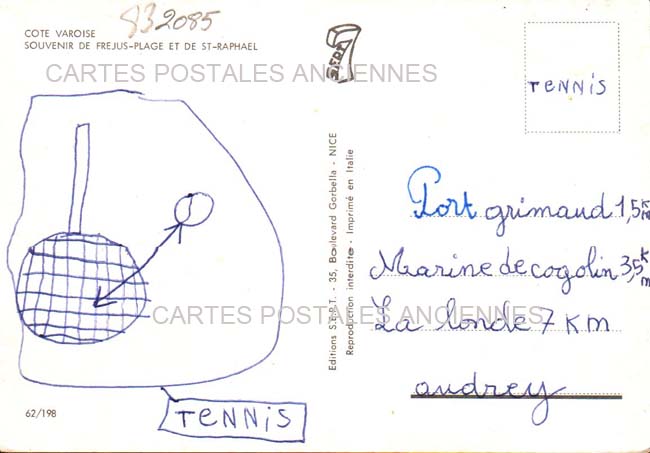 832085
COTE VAROISE
SOUVENIR DE FREJUS-PLAGE ET DE ST-RAPHAEL
CARTES POSTALES ANCIENNES
TENNIS
62/198
SEPT
Editions S.E.P.T. - 35, Boulevard Gorbella - NICE
Reproduction interdite - Imprimé en Italie
TENNIS
Port grimaud 1,5 km
Marine de cogolin 3,5 km
La londe 7 KM
audrey
CARTES POSTALES ANCIENNES